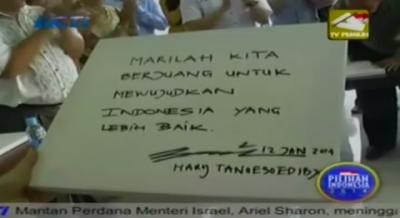 TV PEMILU
MARILAH KITA
BERJUANG UNTUK
MEWUJUDKAN
INDONESIA YANG
LEBIH BAIK.
12 JAN 2014
HARY TANOESOEDIBYO
PILIHAN
INDONESIA
2014
Mantan Perdana Menteri Israel, Ariel Sharon, meningg